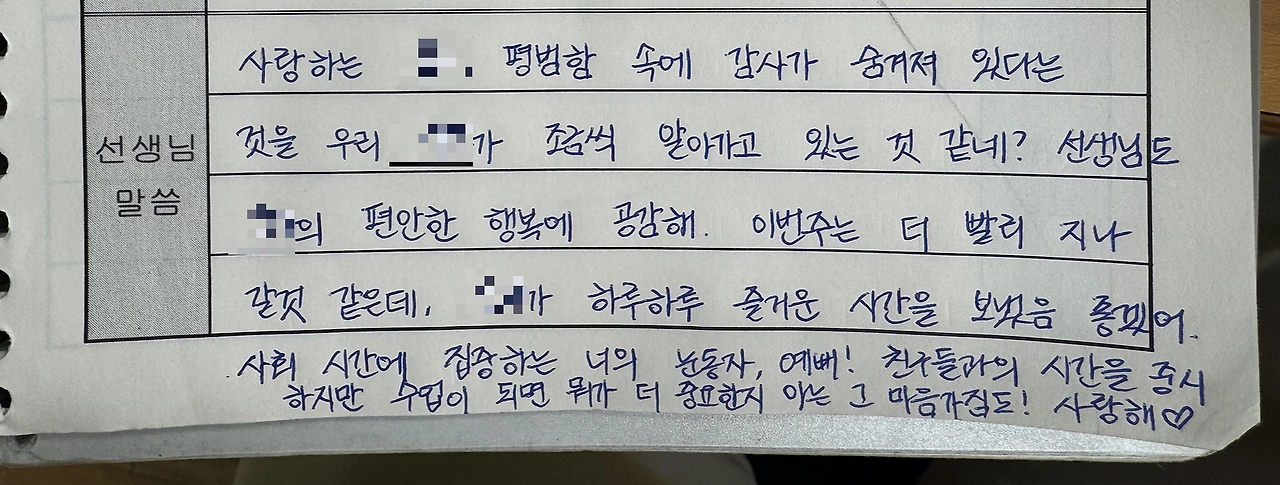 선생님
말씀
사랑하는 . 평범함 속에 감사가 숨겨져 있다는
것을 우리 가 조금씩 알아가고 있는 것 같네? 선생님도
의 편안한 행복에 공감해. 이번주는 더 빨리 지나
갈것 같은데, 가 하루하루 즐거운 시간을 보냈음 좋겠어.
사회 시간에 집중하는 너의 눈동자, 예뻐! 친구들과의 시간을 중시
하지만 수업이 되면 뭐가 더 중요한지 아는 그 마음가짐도! 사랑해♡